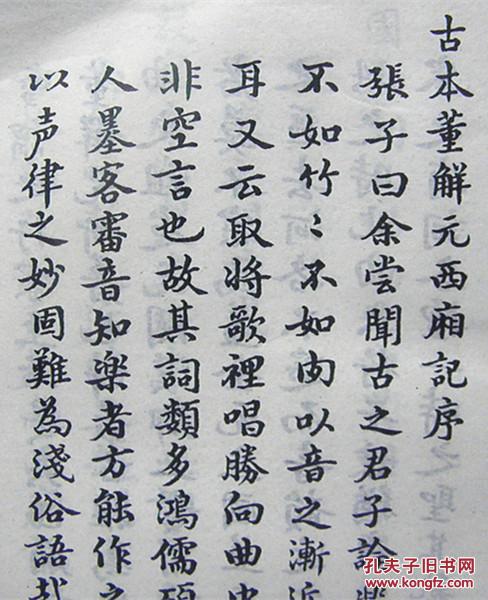 古本董解元西廂記序
張子曰余嘗聞古之君子論
不如竹〻不如肉以音之漸近
耳又云取將歌裡唱勝向曲中
非空言也故其詞類多鴻儒碩
人墨客審音知樂者方能作之
以声律之妙固難為淺俗語哉
孔夫子旧书网
www.kongfz.com